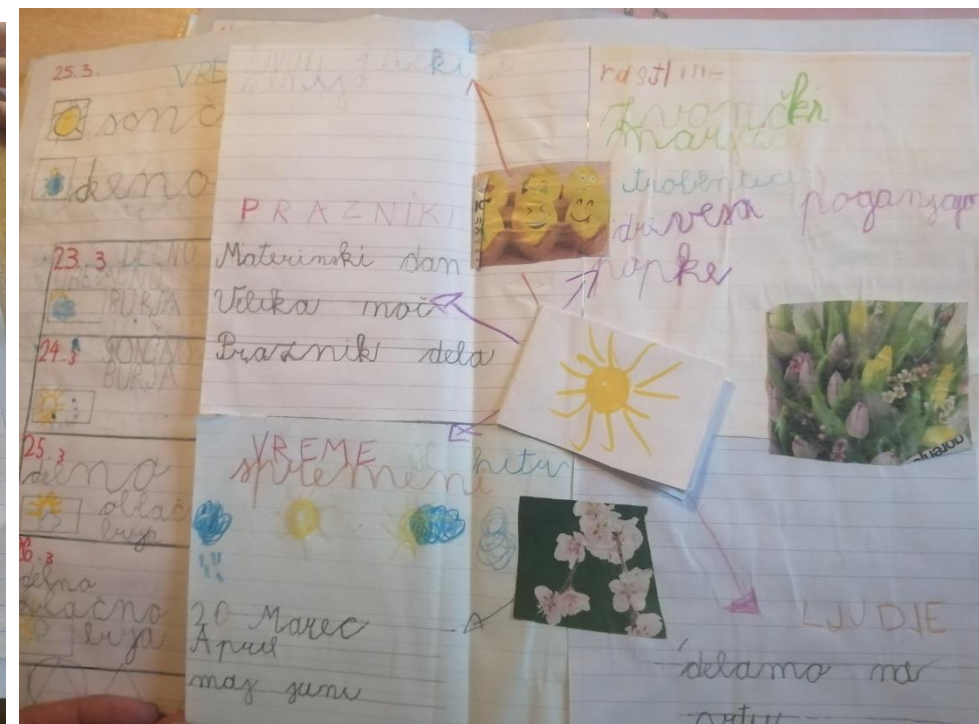 25.3.
VRE
sonč
deno
23.3 DELNO
BURJA
24.3 SONČNO
BURJA
25.3
delno
oblač
burja
26.3
delno
oblačno
burja
PRAZNIKI
Materinski dan
Velika noč
Praznik dela
VREME
spremeni hitro
20 Marec
April
maj juni
rastline
zvončki
marjetice
trobentice
drevesa poganjajo
popke
LJUDJE
delamo na
vrtu